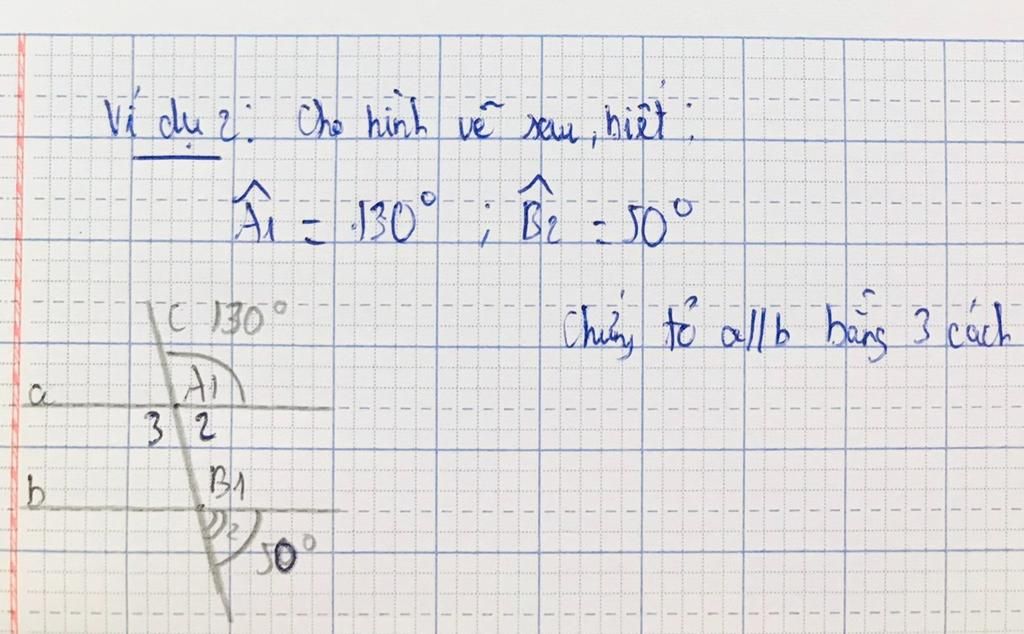 Ví dụ 2: Cho hình vẽ sau, biết:
Â1 = 130° ; B̂2 = 50°
Chứng tỏ a//b bằng 3 cách
C 130°
a A1
3 2
b B1
2 50°